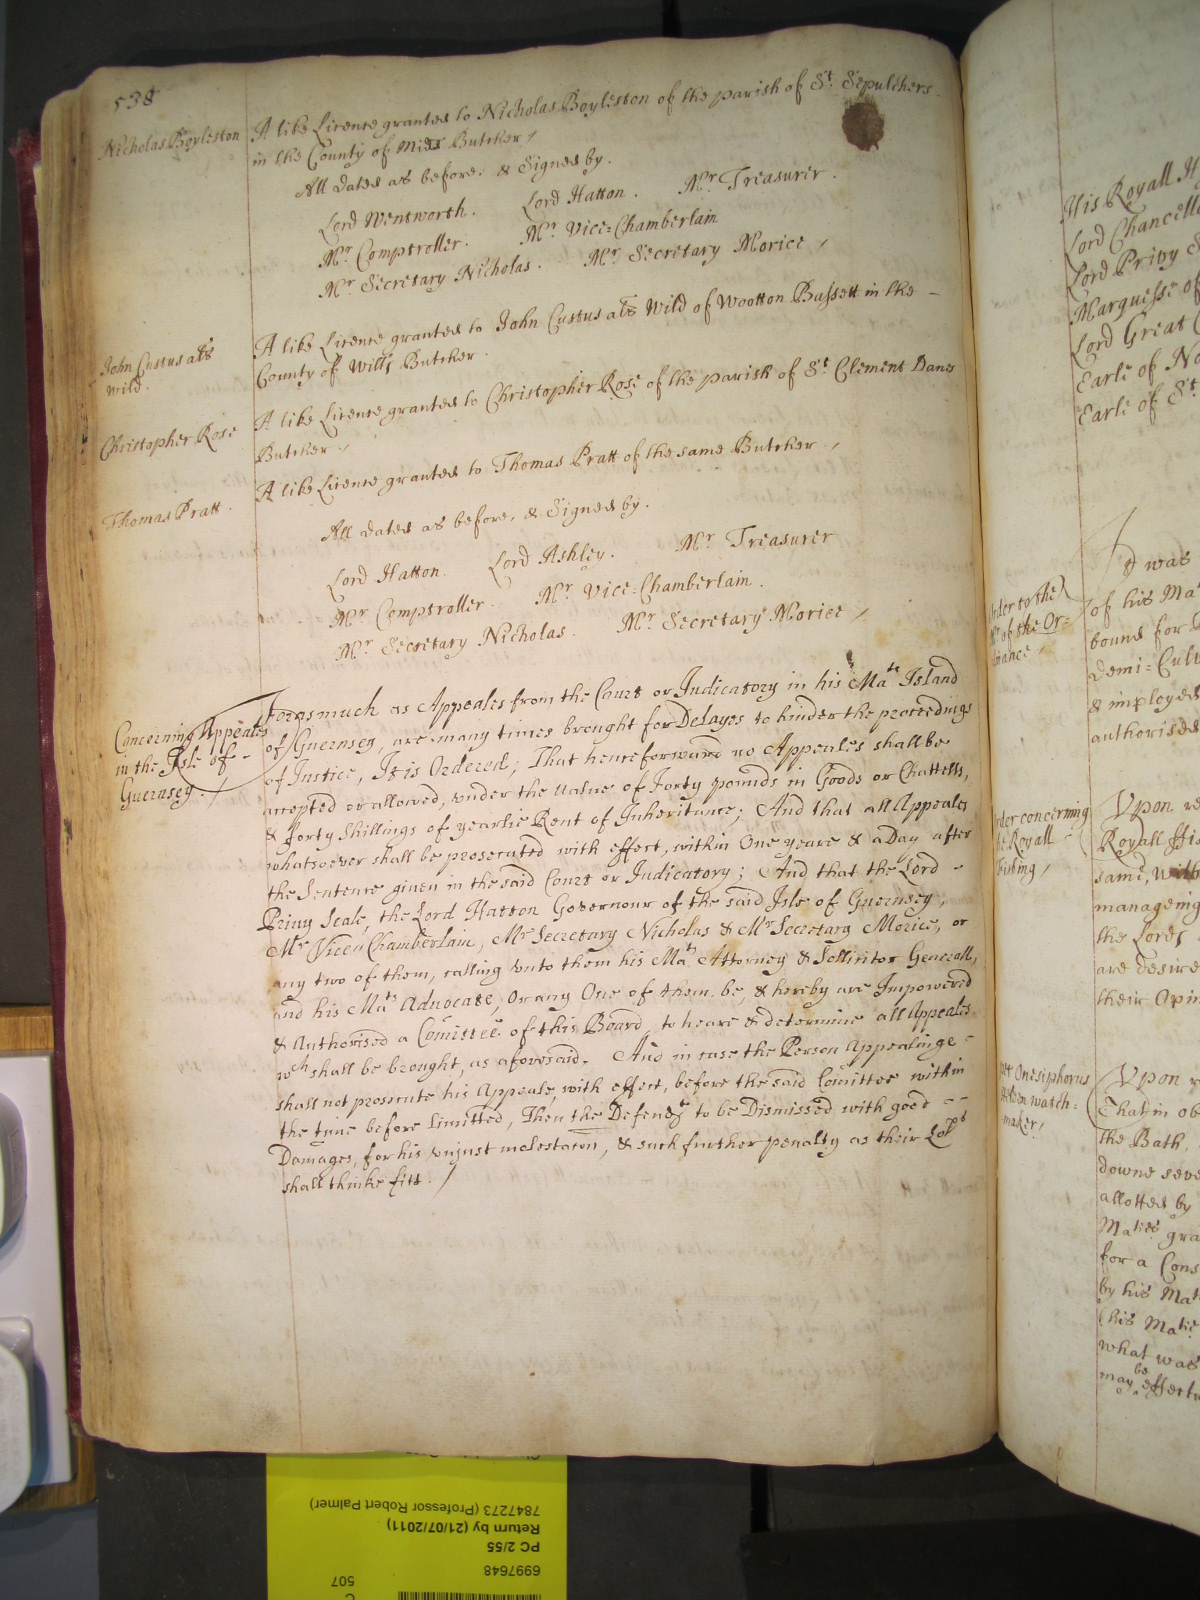 538
Nicholas Boyleston
A like Licence granted to Nicholas Boyleston of the parish of St. Sepulchers
in the County of Midx Butcher
All dated as before, & Signed by.
Lord Wentworth. Lord Hatton. Mr. Treasurer.
Mr. Comptroller. Mr. Vice=Chamberlain
Mr. Secretary Nicholas. Mr. Secretary Morice
John Custus als
Wild.
A like Licence granted to John Custus als Wild of Wootton Bassett in the
County of Wilts Butcher.
Christopher Rose
A like Licence granted to Christopher Rose of the parish of St Clement Danes
Butcher
Thomas Pratt.
A like Licence granted to Thomas Pratt of the same Butcher
All dated as before, & Signed by.
Lord Hatton. Lord Ashley. Mr Treasurer
Mr Comptroller. Mr Vice=Chamberlain.
Mr. Secretary Nicholas. Mr. Secretary Morice
Concerning Appeales
in the Isle of
Guernsey.
Forasmuch as Appeales from the Court or Judicatory in his Mats Island
of Guernsey, are many times brought for Delayes to hinder the proceedings
of Justice, It is Ordered; That henceforward no Appeales shall be
accepted or allowed, under the value of Forty pounds in Goods or Chattells,
& Forty Shillings of yearlie Rent of Inheritance; And that all Appeales
whatsoever shall be prosecuted with effect, within One yeare & a Day after
the Sentence given in the said Court or Judicatory; And that the Lord
Privy Seale, the Lord Hatton Governour of the said Isle of Guernsey,
Mr Vice Chamberlain, Mr Secretary Nicholas & Mr Secretary Morice, or
any two of them, calling unto them his Mats Attorney & Sollicitor Generall,
and his Mats Advocate, Or any One of them be, & hereby are Impowered
& Authorised a Comittee of this Board, to heare & determine all Appeales
wch shall be brought, as aforesaid. And in case the Person Appealinge
shall not prosecute his Appeale, with effect, before the said Comittee within
the time before limitted, Then the Defendt to be Dismissed with good
Damages, for his unjust molestacon, & such further penalty as their Lops
shall thinke fitt.
His Royall H
Lord Chancello
Lord Privy S
Marquesse of
Lord Great C
Earle of No
Earle of St
Order to the
Mr of the Or=
It was
of his Ma
bound for
Demi=Culv
& imployed
authorised
Order concerning
the Royall
Fishing
Upon re
Royall ffis
same, With
manageing
the Lords
are desire
their Opin
Onesiphorus
watch=
maker
Upon
That in ob
the Bath
downe seve
allotted by
Maties gra
for a Cons
by his Mat
(his Matie
what was
may be effectu
7847273 (Professor Robert Palmer)
Return by (21/07/2011)
PC 2/55
6997648
507